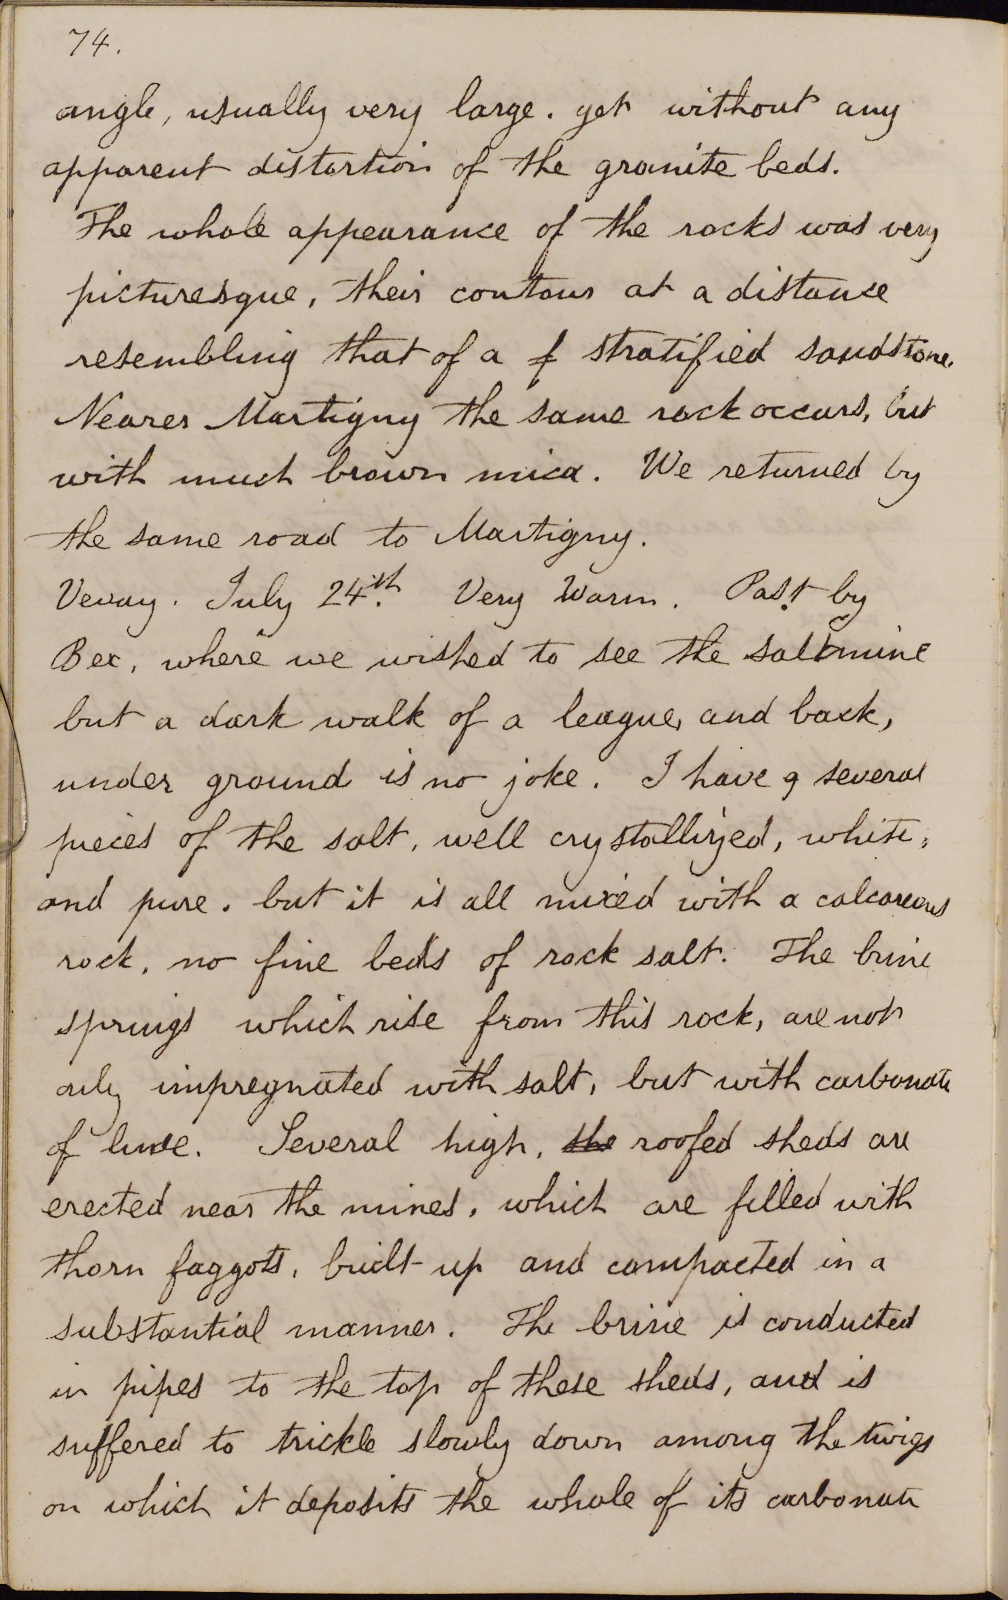 74.
angle, usually very large. yet without any
apparent distortion of the granite beds.
The whole appearance of the rocks was very
picturesque, their contour at a distance
resembling that of a f stratified sandstone.
Nearer Martigny the same rock occurs, but
with much brown mica. We returned by
the same road to Martigny.
Vevay. July 24th. Very Warm. Past by
Bex, where we wished to see the saltmine
but a dark walk of a league, and back,
under ground is no joke. I have 9 several
pieces of the salt, well crystallized, white,
and pure. but it is all mixed with a calcareous
rock, no fine beds of rock salt. The brine
springs which rise from this rock, are not
only impregnated with salt, but with carbonate
of lime. Several high, the roofed sheds are
erected near the mines, which are filled with
thorn faggots, built up and compacted in a
substantial manner. The brine is conducted
in pipes to the top of these sheds, and is
suffered to trickle slowly down among the twigs
on which it deposits the whole of its carbonate